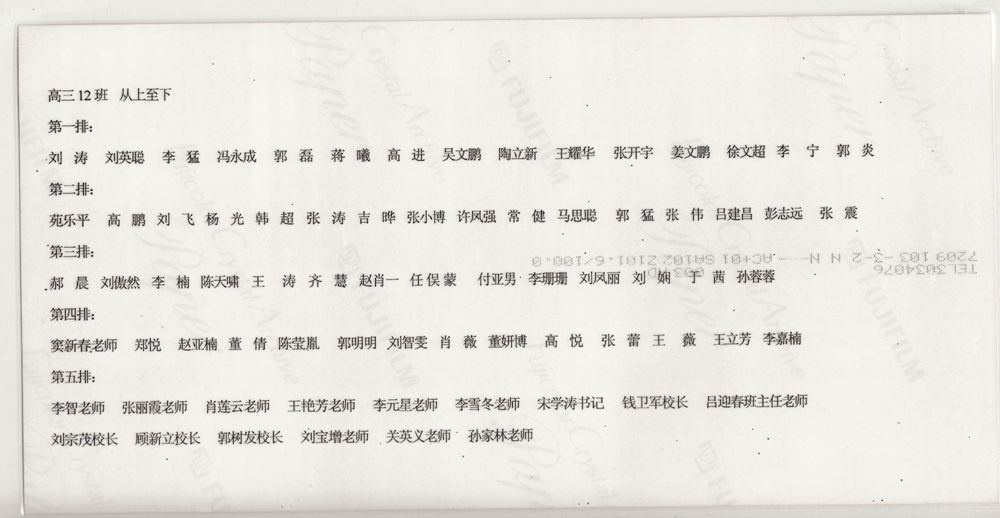 高三12班 从上至下
第一排：
刘 涛 刘英聪 李 猛 冯永成 郭 磊 蒋 曦 高 进 吴文鹏 陶立新 王耀华 张开宇 姜文鹏 徐文超 李 宁 郭 炎
第二排：
苑乐平 高 鹏 刘 飞 杨 光 韩 超 张 涛 吉 晔 张小博 许凤强 常 健 马思聪 郭 猛 张 伟 吕建昌 彭志远 张 震
第三排：
郝 晨 刘傲然 李 楠 陈天啸 王 涛 齐 慧 赵肖一 任俣蒙 付亚男 李珊珊 刘凤丽 刘 娴 于 茜 孙蓉蓉
第四排：
窦新春老师 郑悦 赵亚楠 董 倩 陈莹胤 郭明明 刘智雯 肖 薇 董妍博 高 悦 张 蕾 王 薇 王立芳 李嘉楠
第五排：
李智老师 张丽霞老师 肖莲云老师 王艳芳老师 李元星老师 李雪冬老师 宋学涛书记 钱卫军校长 吕迎春班主任老师
刘宗茂校长 顾新立校长 郭树发校长 刘宝增老师 关英义老师 孙家林老师
TEL3034076
7209 103 -3-2 N N N--- AC+01 SA102 Z101.6/100.0
FUJIFILM
Fujicolor
Crystal Archive
Paper